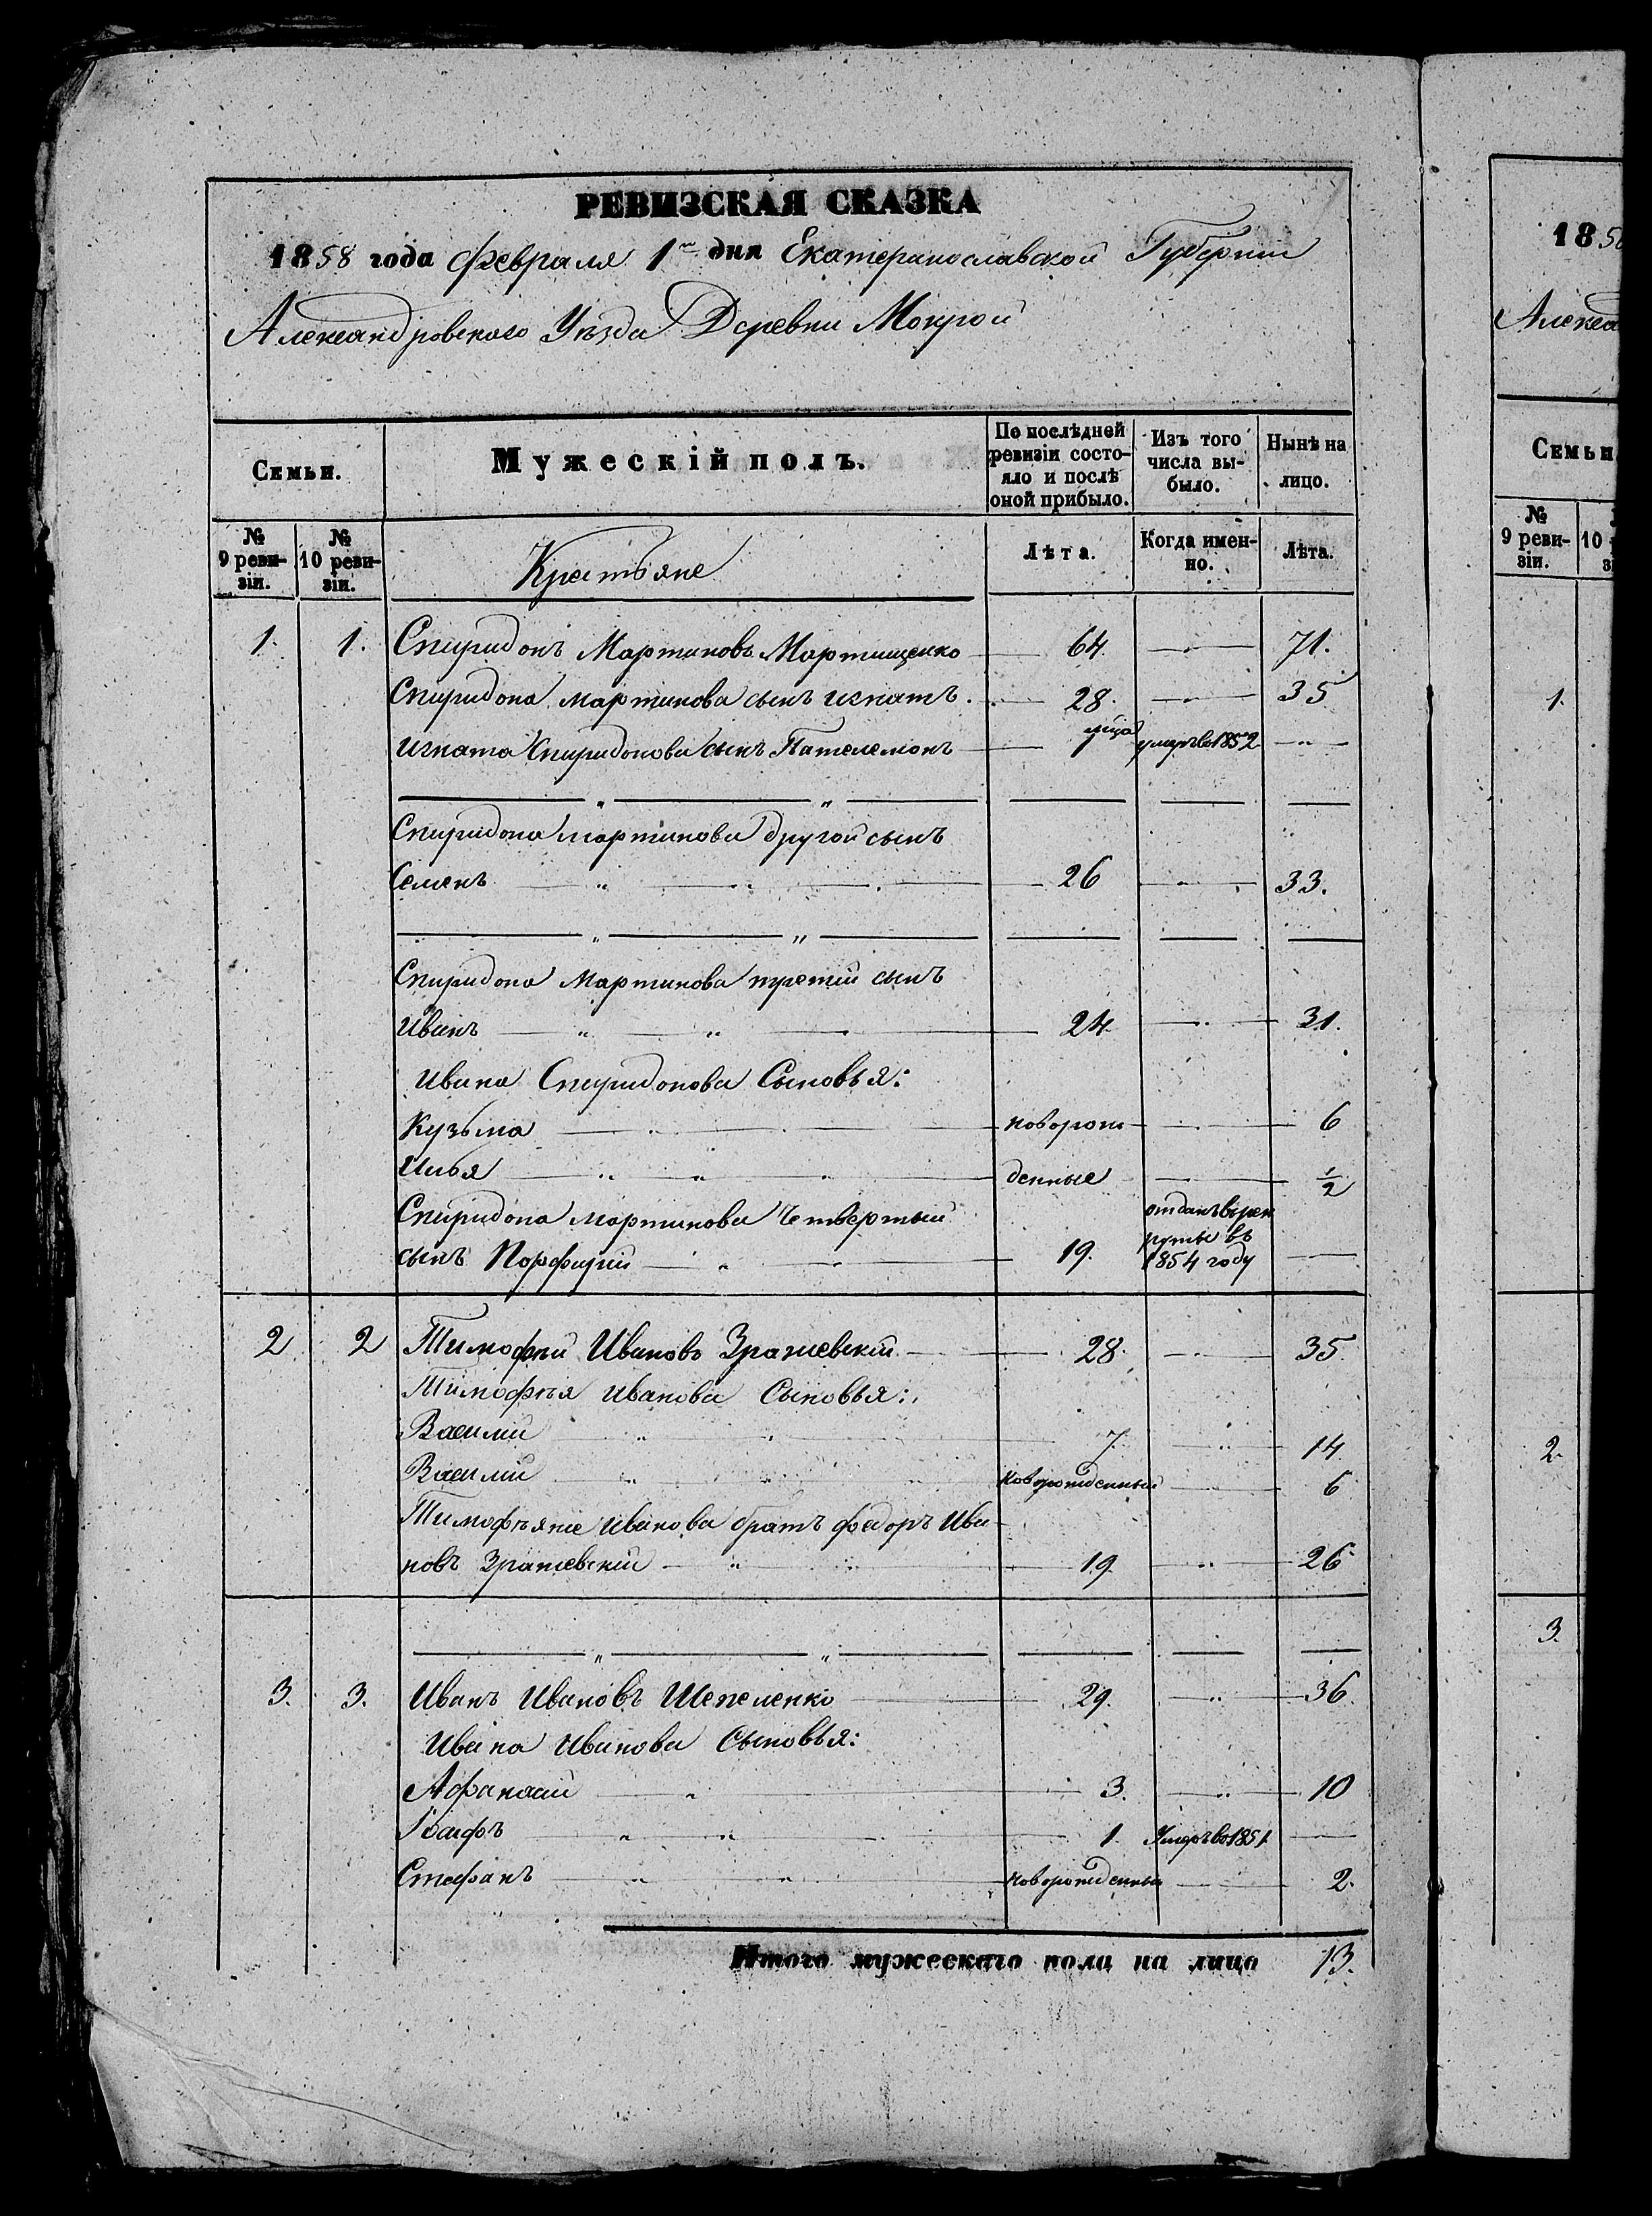 РЕВИЗСКАЯ СКАЗКА
1858 года Февраля 1го дня Екатеринославской Губернии
Александровского Уѣзда Деревни Мокрой
Семьи.
Мужескій полъ.
По послѣдней ревизіи состо-
яло и послѣ
оной прибыло.
Изъ того
числа вы-
было.
Нынѣ на
лицо.
№
9 реви-
зіи.
№
10 реви-
зіи.
Крестьяне
Лѣта.
Когда имен-
но.
Лѣта.
1. 1. Спиридонъ Мартиновъ Мартищенко 64. 71.
Спиридона Мартинова сынъ Игнатъ. 28. 35
Игната Спиридонова сынъ Пателемонъ 1 умеръ в 1852
Спиридона Мартинова другой сынъ
Семенъ 26 33.
Спиридона Мартинова третий сынъ
Иванъ 24 31.
Ивана Спиридонова Сыновья:
Кузьма новорож 6
Илья денные 1/2
Спиридона Мартинова Четвертый отданъ в рек
сынъ Порфирий 19. руты въ
1854 году
2 2 Тимофей Ивановъ Зражевский 28. 35.
Тимофѣя Иванова Сыновья:
Василий 7. 14
Василий новорожденный 6
Тимофѣя же Иванова братъ Федоръ Ива-
новъ Зражевский 19. 26
3. 3. Иванъ Ивановъ Шепеленко 29. 36.
Ивана Иванова Сыновья:
Афанасий 3. 10
Иосифъ 1. Умеръ в 1851
Стефанъ новорожденный 2.
Итого мужескаго пола на лицо 13.
1858
Алекса
Семьи
№
9 реви-
зіи.
10
1.
2.
3.